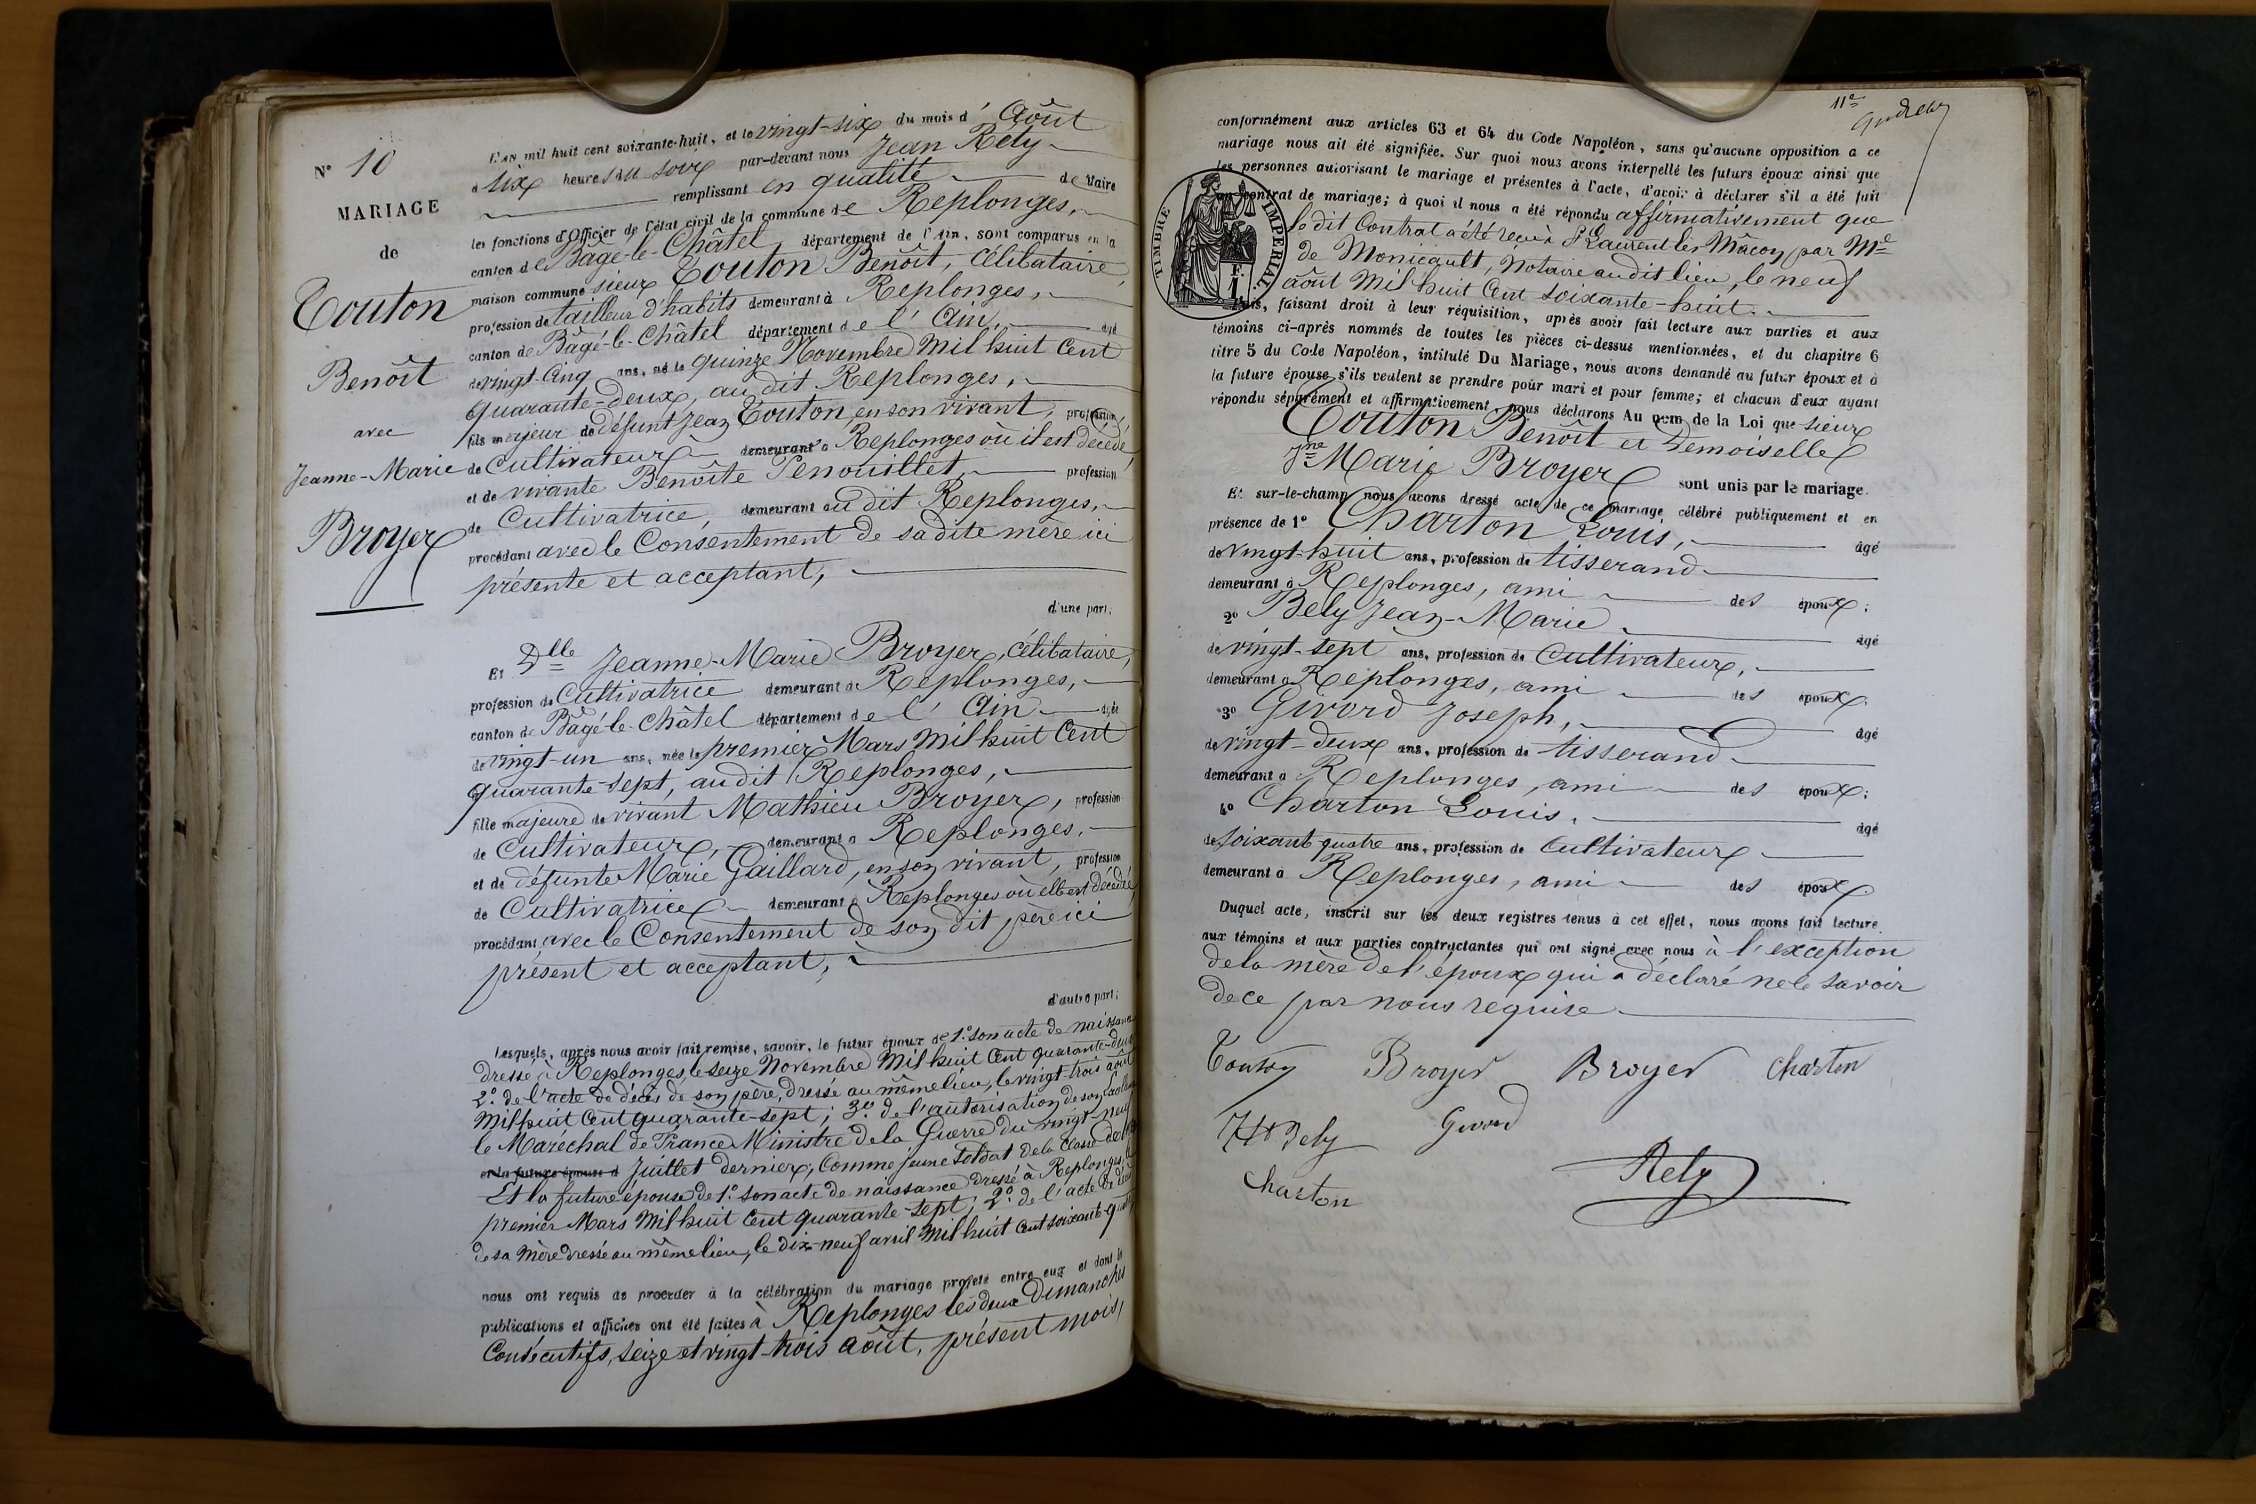 N° 10
MARIAGE
de
Touton
Benoît
avec
Jeanne-Marie
Broyer
L'AN mil huit cent soixante-huit, et le vingt-six du mois d' Août
à six heures du soir par-devant nous Jean Rély
remplissant en qualité de Maire
les fonctions d'Officier de l'état civil de la commune de Replonges,
canton de Bâgé-le-Châtel département de l'Ain, sont comparus en la
maison commune sieur Touton Benoît, célibataire,
profession de tailleur d'habits demeurant à Replonges,
canton de Bâgé-le-Châtel département de l'Ain âgé
de vingt-cinq ans, né le quinze Novembre mil huit cent
quarante-deux, au dit Replonges,
fils majeur de défunt Jean Touton, en son vivant, profession
de Cultivateur demeurant à Replonges où il est décédé,
et de vivante Benoîte Penouillet, profession
de Cultivatrice, demeurant au dit Replonges,
procédant avec le Consentement de sa dite mère ici
présente et acceptant,
d'une part;
Et Dlle Jeanne-Marie Broyer, célibataire,
profession de Cultivatrice demeurant à Replonges,
canton de Bâgé-le-Châtel département de l'Ain âgée
de vingt-un ans, née le premier Mars mil huit cent
quarante-sept, au dit Replonges,
fille majeure de vivant Mathieu Broyer, profession
de Cultivateur, demeurant à Replonges,
et de défunte Marie Gaillard, en son vivant, profession
de Cultivatrice demeurant à Replonges où elle est décédée,
procédant avec le Consentement de son dit père ici
présent et acceptant,
d'autre part;
Lesquels, après nous avoir fait remise, savoir, le futur époux de 1° son acte de naissance
dressé à Replonges le seize Novembre mil huit cent quarante-deux
2° de l'acte de décès de son père, dressé au même lieu, le vingt-trois août
mil huit cent quarante-sept; 3° de l'autorisation de son Excellence
le Maréchal de France Ministre de la Guerre du vingt-neuf
et la future épouse d Juillet dernier, comme jeune soldat de la classe de
Et la future épouse de 1° son acte de naissance dressé à Replonges, le
premier Mars mil huit cent quarante-sept; 2° de l'acte de décès
de sa mère dressé au même lieu, le dix-neuf avril mil huit cent soixante-quatre
nous ont requis de procéder à la célébration du mariage projeté entre eux et dont les
publications et affiches ont été faites à Replonges les deux Dimanches
consécutifs, seize et vingt-trois août, présent mois,
11e
conformément aux articles 63 et 64 du Code Napoléon, sans qu'aucune opposition à ce
mariage nous ait été signifiée. Sur quoi nous avons interpellé les futurs époux ainsi que
les personnes autorisant le mariage et présentes à l'acte, d'avoir à déclarer s'il a été fait
un contrat de mariage; à quoi il nous a été répondu affirmativement que
TIMBRE IMPERIAL
le dit Contrat a été reçu à St Laurent les Mâcon, par Me
de Monicault, Notaire au dit lieu, le neuf
août mil huit cent soixante-huit.
Nous, faisant droit à leur réquisition, après avoir fait lecture aux parties et aux
témoins ci-après nommés de toutes les pièces ci-dessus mentionnées, et du chapitre 6
titre 5 du Code Napoléon, intitulé Du Mariage, nous avons demandé au futur époux et à
la future épouse s'ils veulent se prendre pour mari et pour femme; et chacun d'eux ayant
répondu séparément et affirmativement, nous déclarons Au nom de la Loi que sieur
Touton Benoît et Demoiselle
Jne Marie Broyer sont unis par le mariage.
Et sur-le-champ nous avons dressé acte de ce mariage célébré publiquement et en
présence de 1° Charton Louis, âgé
de vingt-huit ans, profession de tisserand
demeurant à Replonges, ami des époux;
2° Bely Jean-Marie âgé
de vingt-sept ans, profession de Cultivateur,
demeurant à Replonges, ami des époux.
3° Givord Joseph, âgé
de vingt-deux ans, profession de tisserand
demeurant à Replonges, ami des époux;
4° Charton Louis, âgé
de soixante quatre ans, profession de Cultivateur
demeurant à Replonges, ami des époux.
Duquel acte, inscrit sur les deux registres tenus à cet effet, nous avons fait lecture
aux témoins et aux parties contractantes qui ont signé avec nous à l'exception
de la mère de l'époux qui a déclaré ne le savoir
de ce par nous requise
Touton Broyer Broyer Charton
Bely Givord
Charton Rely